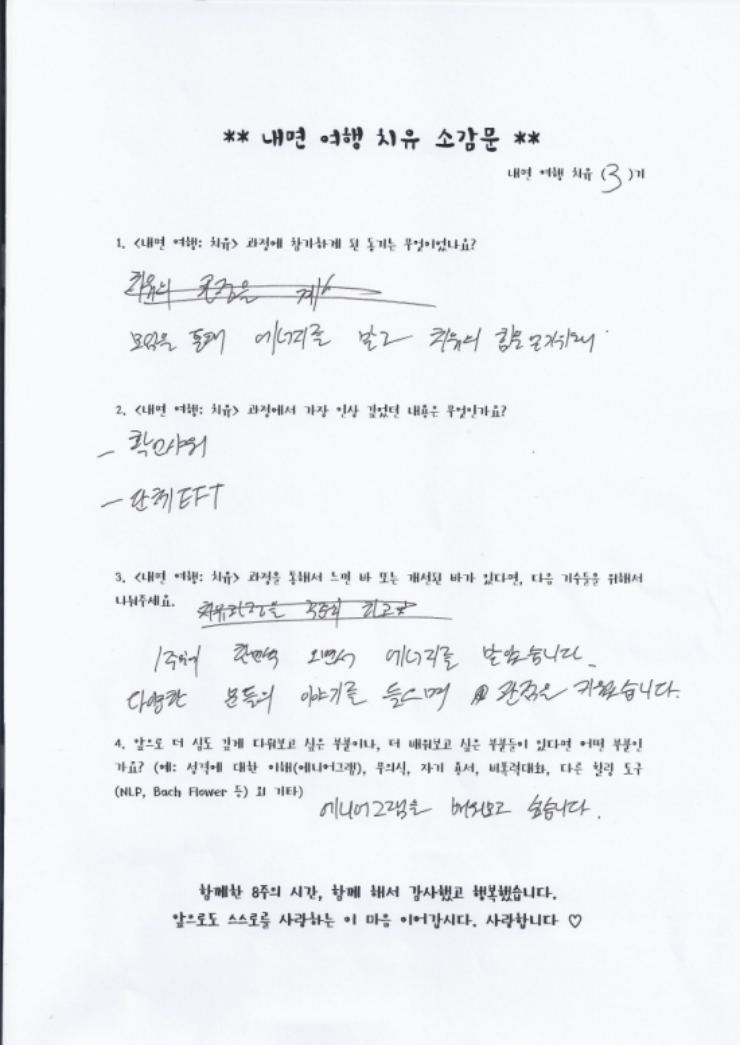 ** 내면 여행 치유 소감문 **
내면 여행 치유 (3)기
1. <내면 여행: 치유> 과정에 참가하게 된 동기는 무엇이었나요?
치유의
모임을 통해 에너지를 받고 치유의 힘을
2. <내면 여행: 치유> 과정에서 가장 인상 깊었던 내용은 무엇인가요?
- 확언샤워
- 단체 EFT
3. <내면 여행: 치유> 과정을 통해서 느낀 바 또는 개선된 바가 있다면, 다음 기수들을 위해서
나눠주세요.
1주에 한번씩 오면서 에너지를 받았습니다.
다양한 분들의 이야기를 들으며 관점을 키웠습니다.
4. 앞으로 더 심도 깊게 다뤄보고 싶은 부분이나, 더 배워보고 싶은 부분들이 있다면 어떤 부분인
가요? (예: 성격에 대한 이해(에니어그램), 무의식, 자기 용서, 비폭력대화, 다른 힐링 도구
(NLP, Bach Flower 등) 외 기타)
에니어그램을 배워보고 싶습니다.
함께한 8주의 시간, 함께 해서 감사했고 행복했습니다.
앞으로도 스스로를 사랑하는 이 마음 이어갑시다. 사랑합니다 ♡